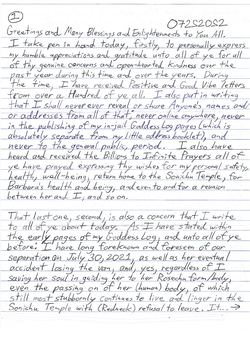 ①
07252022
Greetings and Many Blessings and Enlightenments to You All.
I take pen in hand today, firstly, to personally express
my humble appreciations and gratitude unto all of ye for all
of thy genuine concerns and openhearted kindness over the
past year during this time and over the years. During
The time, I have received Positive and Good Vibe letters
from over a Hundred of ye all. I also put in writing
that I shall never ever reveal or share Anyone's names and/
or addresses from all of that, never online anywhere, never
in the publishing of my in-jail Goddess Log pages (which is
absolutely separate from my little address booklet), and
never to the general public, period. I also have
heard and received the Billions to Infinite Prayers all of
ye have prayed expressing thy wishes for my personal safety,
health, well-being, return home to the Sonichu Temple, for
Barbara's health and being, and even to and for a reunion
between her and I, and so on.
That last one, second, is also a concern that I write
to all of ye about today. As I have stated within
the early pages of my Goddess Log, and unto all of ye
before: I have long foreknown and foreseen of our
separation on July 30, 2021, as well as her eventual
accident losing the van, and, yes, regardless of I
saving her soul in guiding her to her Rosechu Form/body,
even the passing on of her (human) body, of which
still most stubbornly continues to live and linger in the
Sonichu Temple with (Redneck) refusal to leave. It...→